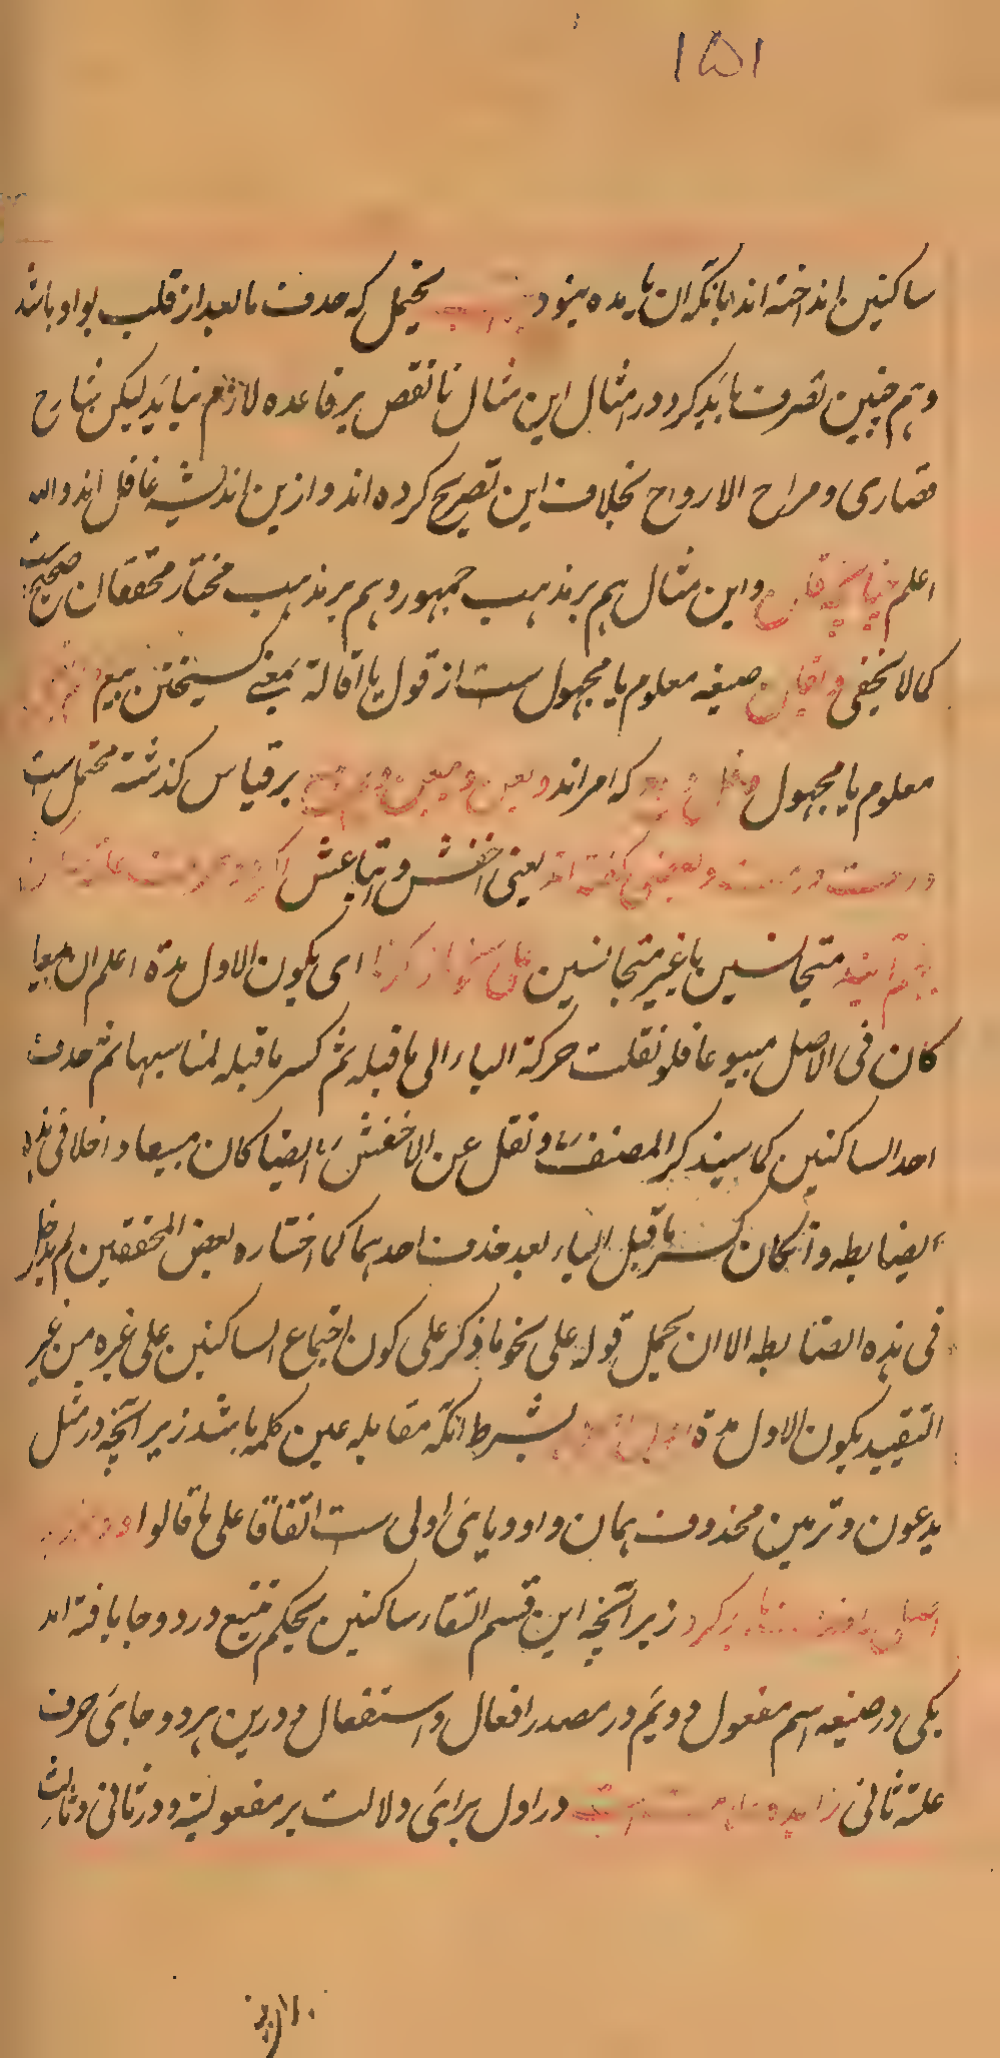 ۱۵۱
ساکنین انداخته اند بانکه ان یا مده نبود یحتمل که حذف مابعد از قلب بواو باشد
و هم چنین تصرف باید کرد در امثال این مثال تا نقض بر قاعده لازم نیاید لیکن شارح
قصاری و مراح الارواح بخلاف این تصریح کرده اند و ازین اندیشه غافل اند والله
اعلم چنانچه قلن و این مثال هم بر مذهب جمهور و هم بر مذهب مختار محققان صحیح ست
کما لا یخفی و اقلن صیغه معلوم یا مجهول ست از قول یا اقالة بمعنی گسیختن بیع
معلوم یا مجهول که امر اند و بعن و بیعن بر قیاس گذشته محتمل ست
و بعضی گفته اند یعنی اخفش و اتباعش
متجانسین یا غیر متجانسین ای یکون الاول مدة اعلم ان مبیعا
کان فی الاصل مبیوعا فلو نقلت حرکة الیاء الی ما قبله ثم کسر ما قبله لمناسبها ثم حذف
احد الساکنین کما سیذکر المصنف و نقل عن الاخفش ایضا کان مبیعا داخلا فی هذه
الضابطه و ان کان کسر ما قبل الیاء بعد حذف احدهما کما اختاره بعض المحققین لم یدخل
فی هذه الضابطه الا ان یحمل قوله علی نحو ما ذکر علی کون اجتماع الساکنین علی غیره من غیر
التقیید بکون الاول مدة بشرط انکه مقابله عین کلمه باشد زیرانچه در مثل
یدعون و ترمین محذوف همان واو و یای اولی ست اتفاقا علی ما قالوا
زیرانچه این قسم التقاء ساکنین بحکم تتبع در دو جا یافته اند
یکی در صیغه اسم مفعول دویم در مصدر افعال و استفعال و درین هر دو جای حرف
علته ثانی زایده در اول برای دلالت بر مفعولیة و در ثانی و ثالث